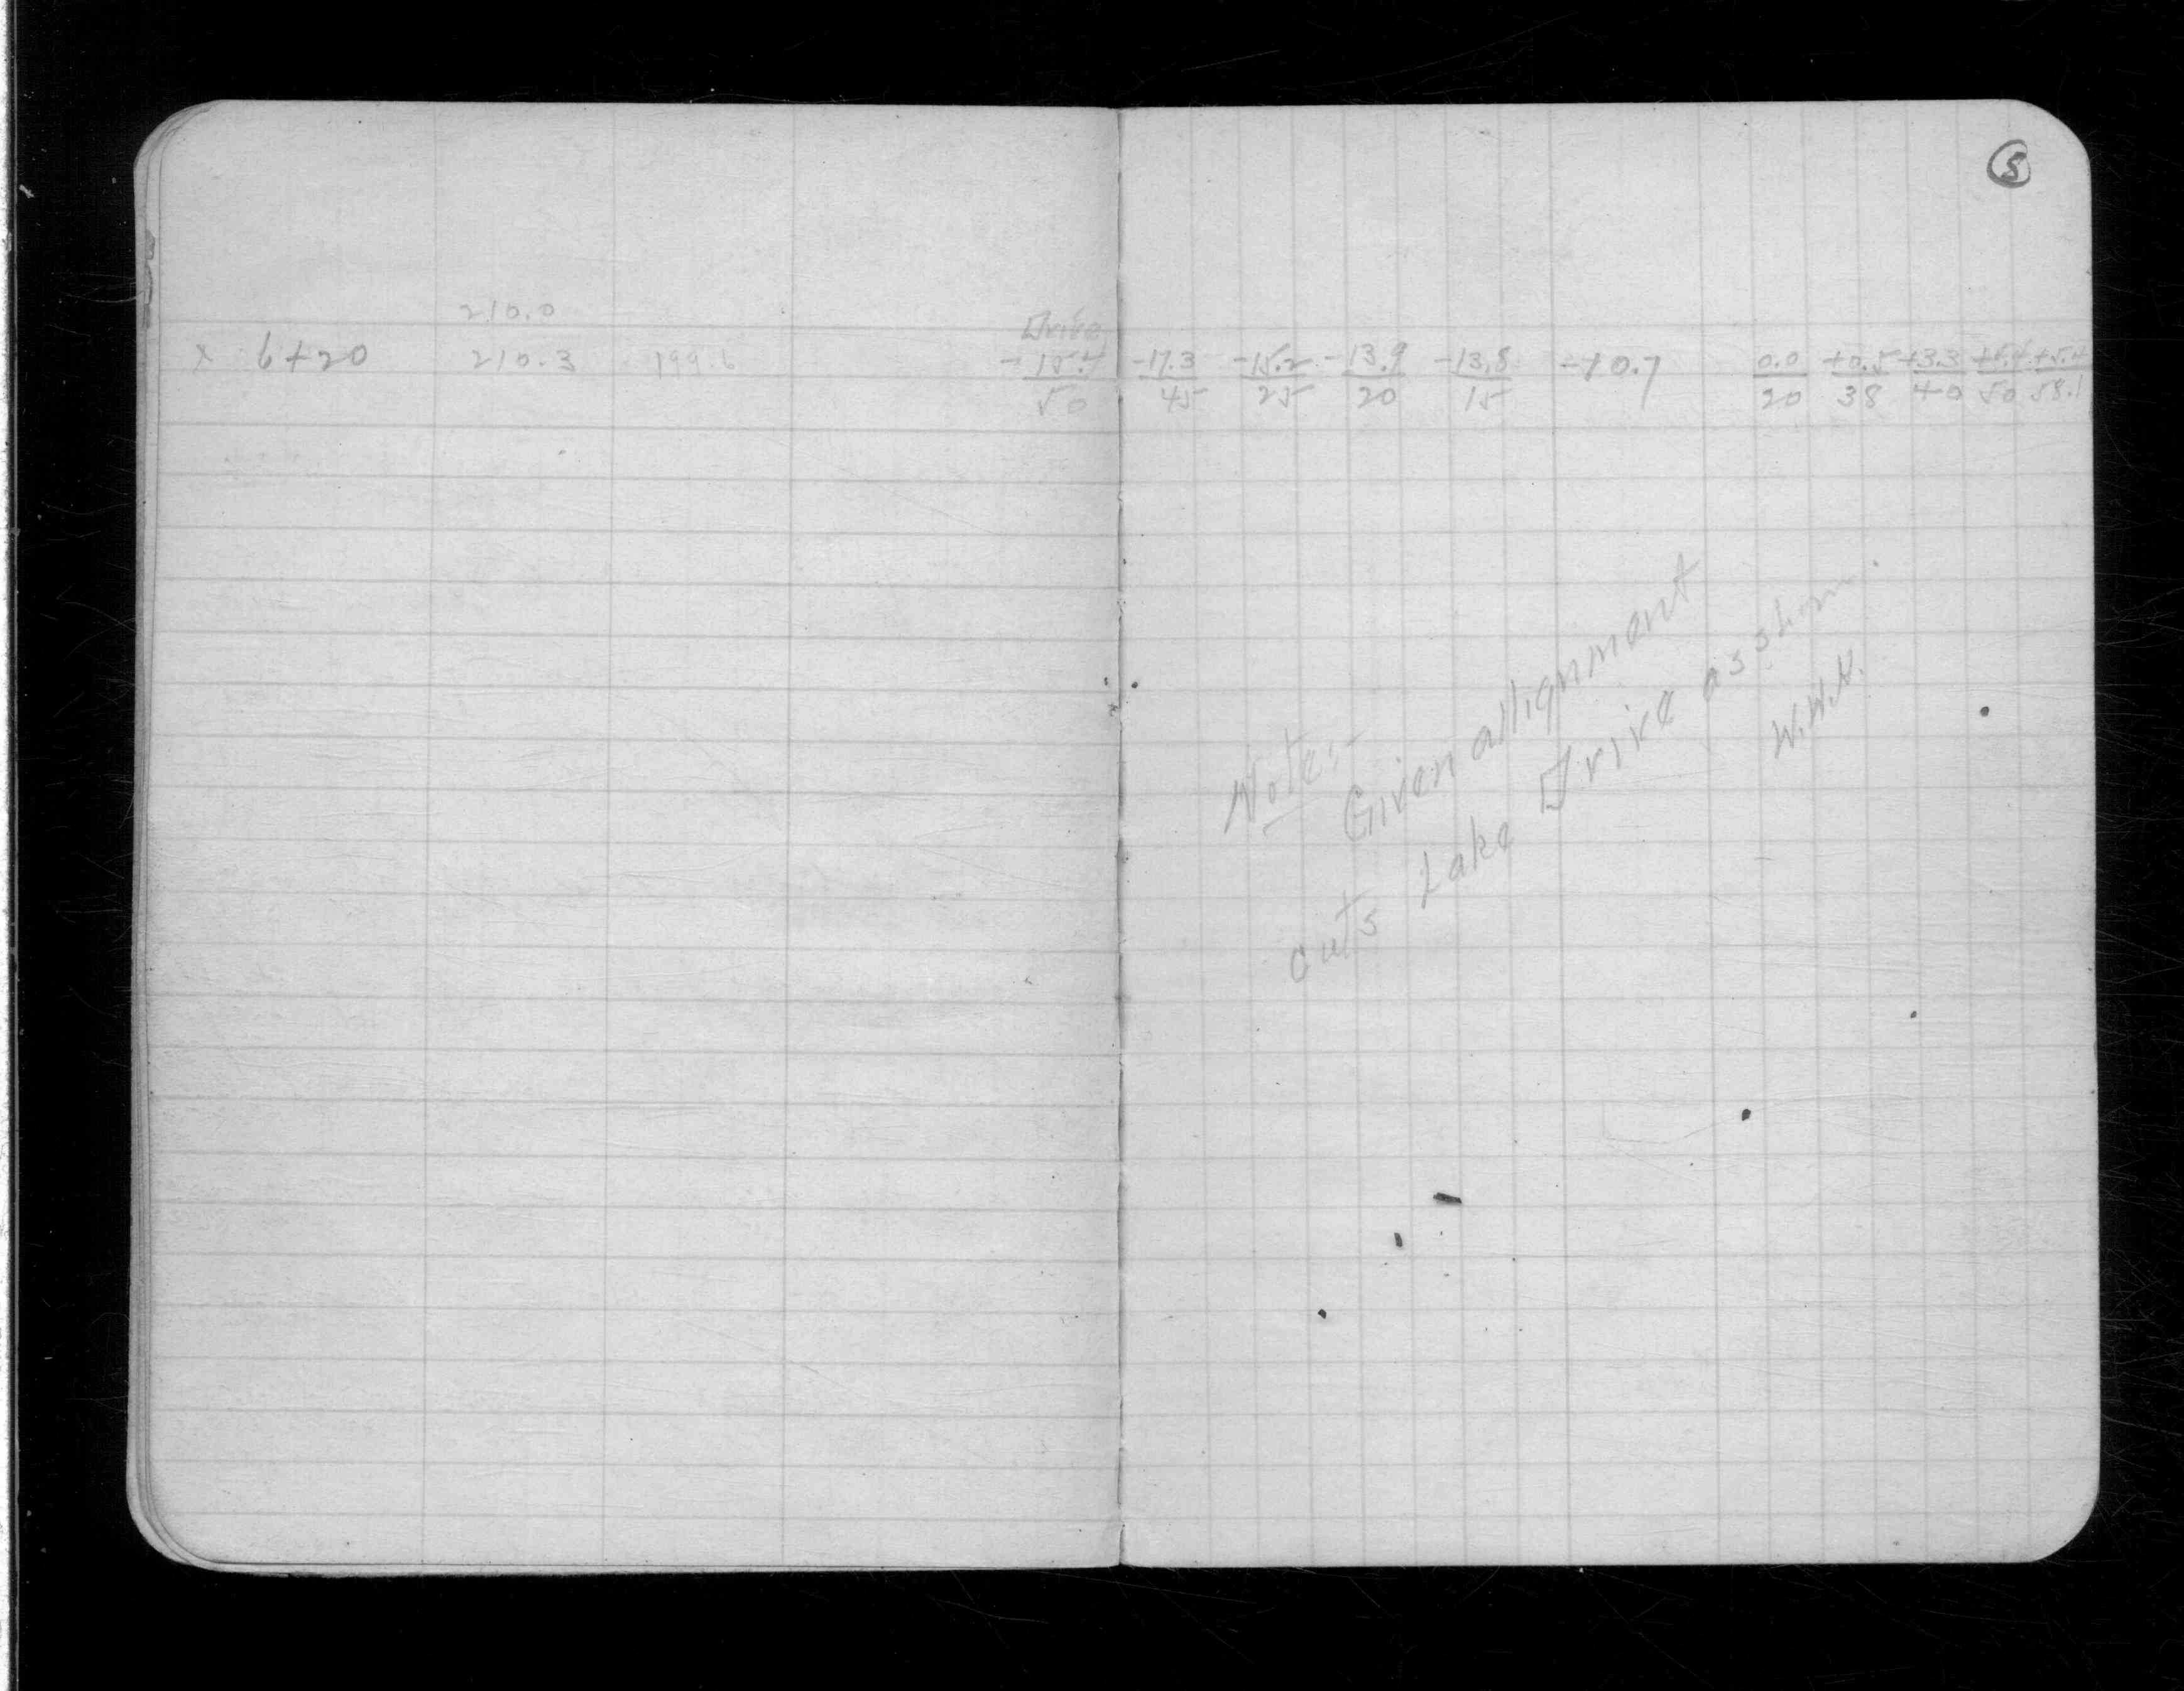 5
210.0
Drive
x 6+20 210.3 199.6 -15.4 -17.3 -15.2 -13.9 -13.8 -10.7 0.0 +0.5 +3.3 +5.4 +5.4
50 45 25 20 15 20 38 40 50 58.1
Note:-
Given allignment
cuts Lake Drive as shown.
W.W.H.